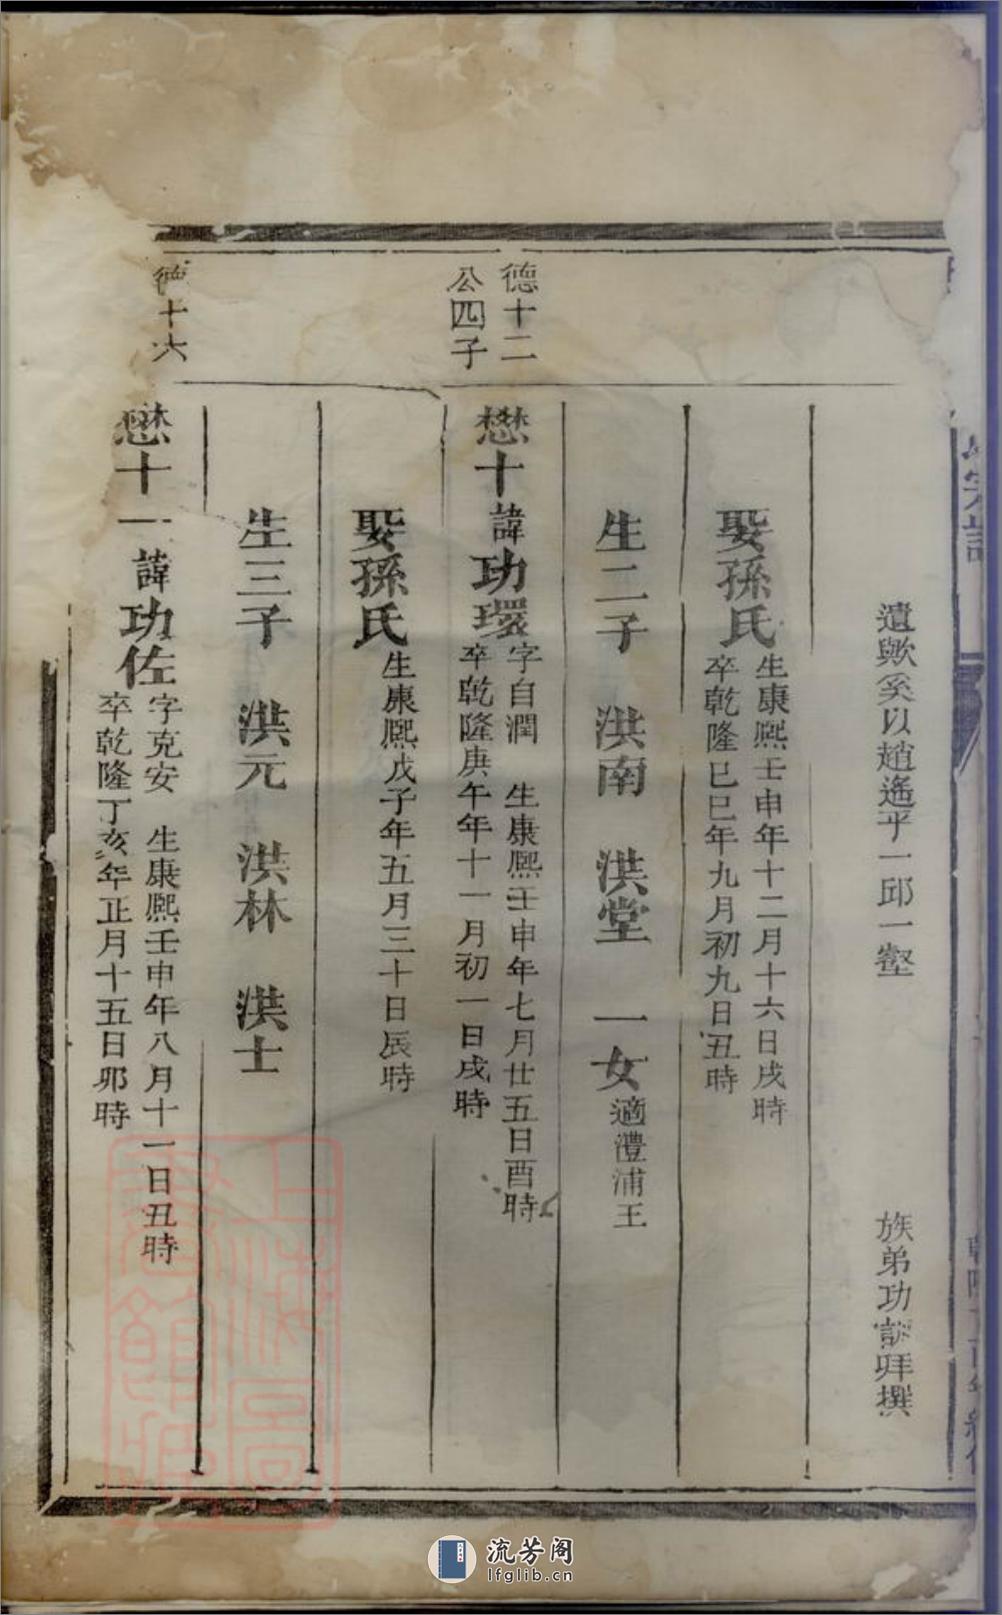 遺歟奚以趙遙平一邱一壑
族弟功䜣拜撰
娶孫氏
生康熙壬申年十二月十六日戌時
卒乾隆已巳年九月初九日丑時
生二子 洪南 洪堂 一女適澧浦王
德十二
公四子
懋十諱功環
字自潤 生康熙壬申年七月廿五日酉時
卒乾隆庚午年十一月初一日戌時
娶孫氏
生康熙戊子年五月三十日辰時
生三子 洪元 洪林 洪士
德十六
懋十一諱功佐
字克安 生康熙壬申年八月十一日丑時
卒乾隆丁亥年正月十五日卯時
上海圖書館藏
流芳阁
lfglib.cn